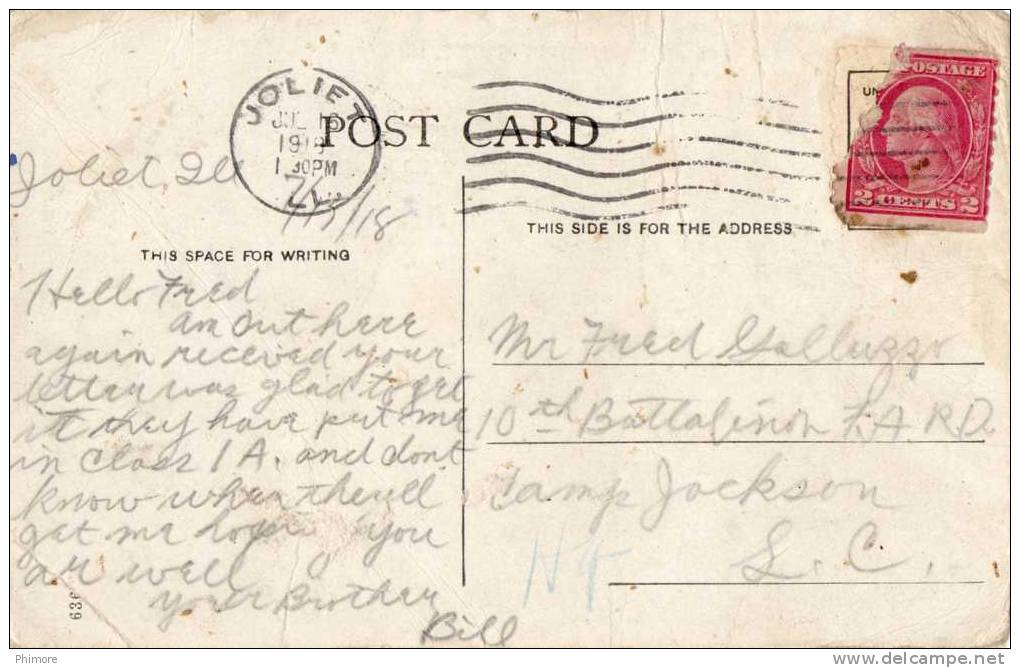 JOLIET
JUL 16
1918
1 30PM
ILL.
POST CARD
POSTAGE
UN
2 CENTS 2
Joliet, Ill
7/15/18
THIS SPACE FOR WRITING
THIS SIDE IS FOR THE ADDRESS
Hello Fred
am out here
again received your
letter was glad to get
it they have put me
in Class 1 A. and dont
know when they'll
get me hope you
are well
Your Brother
Bill
Mr Fred Galluzzo
10th Battalinon F.A.R.D.
Camp Jackson
S. C.
636
Phimore
delcampe.net